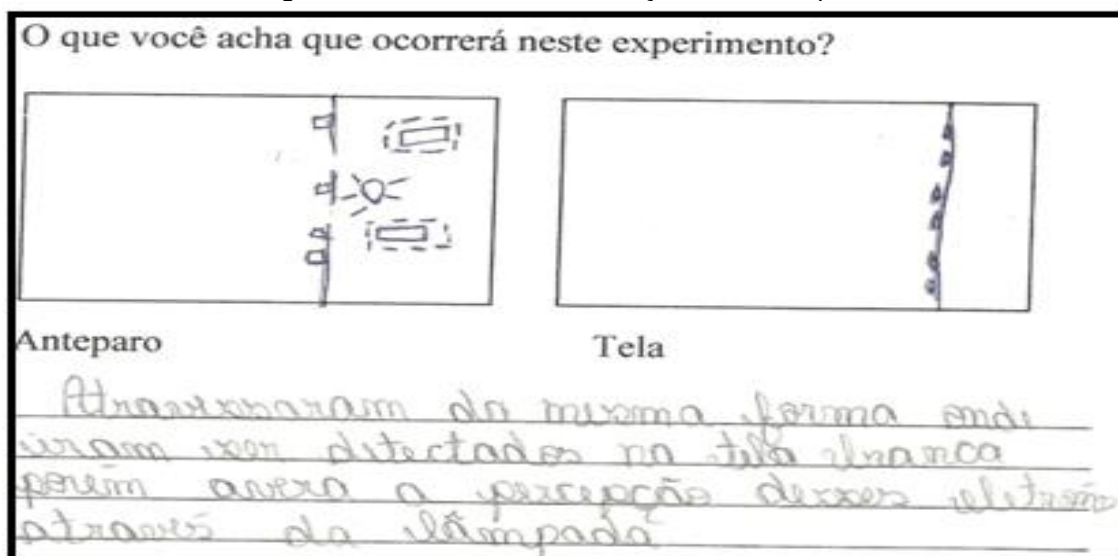 O que você acha que ocorrerá neste experimento?
Anteparo
Tela
Atravessaram da mesma forma onde
iram ser detectados na tela branca
porém avera a percepção desses eletrons
através da lâmpada